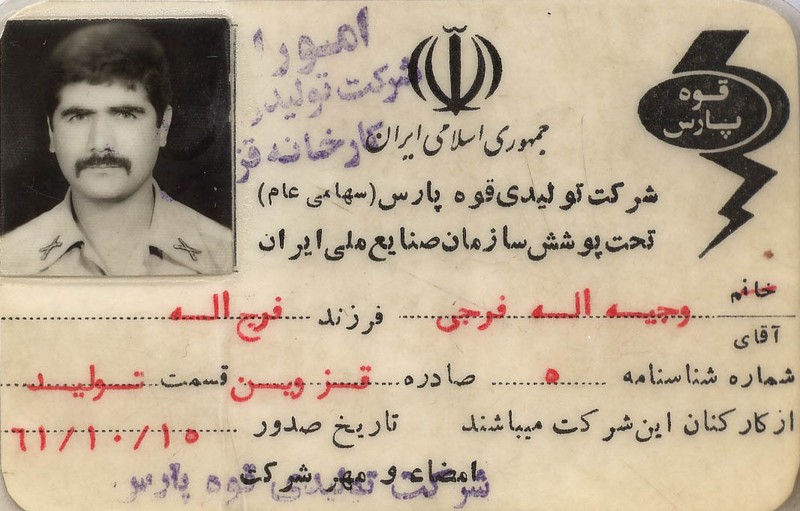 قوه پارس
جمهوری اسلامی ایران
شرکت تولیدی قوه پارس (سهامی عام)
تحت پوشش سازمان صنایع ملی ایران
خانم
آقای وجیه اله فرجی فرزند فرج اله
شماره شناسنامه ۵ صادره قزوین قسمت تولید
از کارکنان این شرکت میباشند تاریخ صدور ۶۱/۱۰/۱۵
امضاء و مهر شرکت
شرکت تولیدی قوه پارس
امور
شرکت تولیدی
کارخانه قز